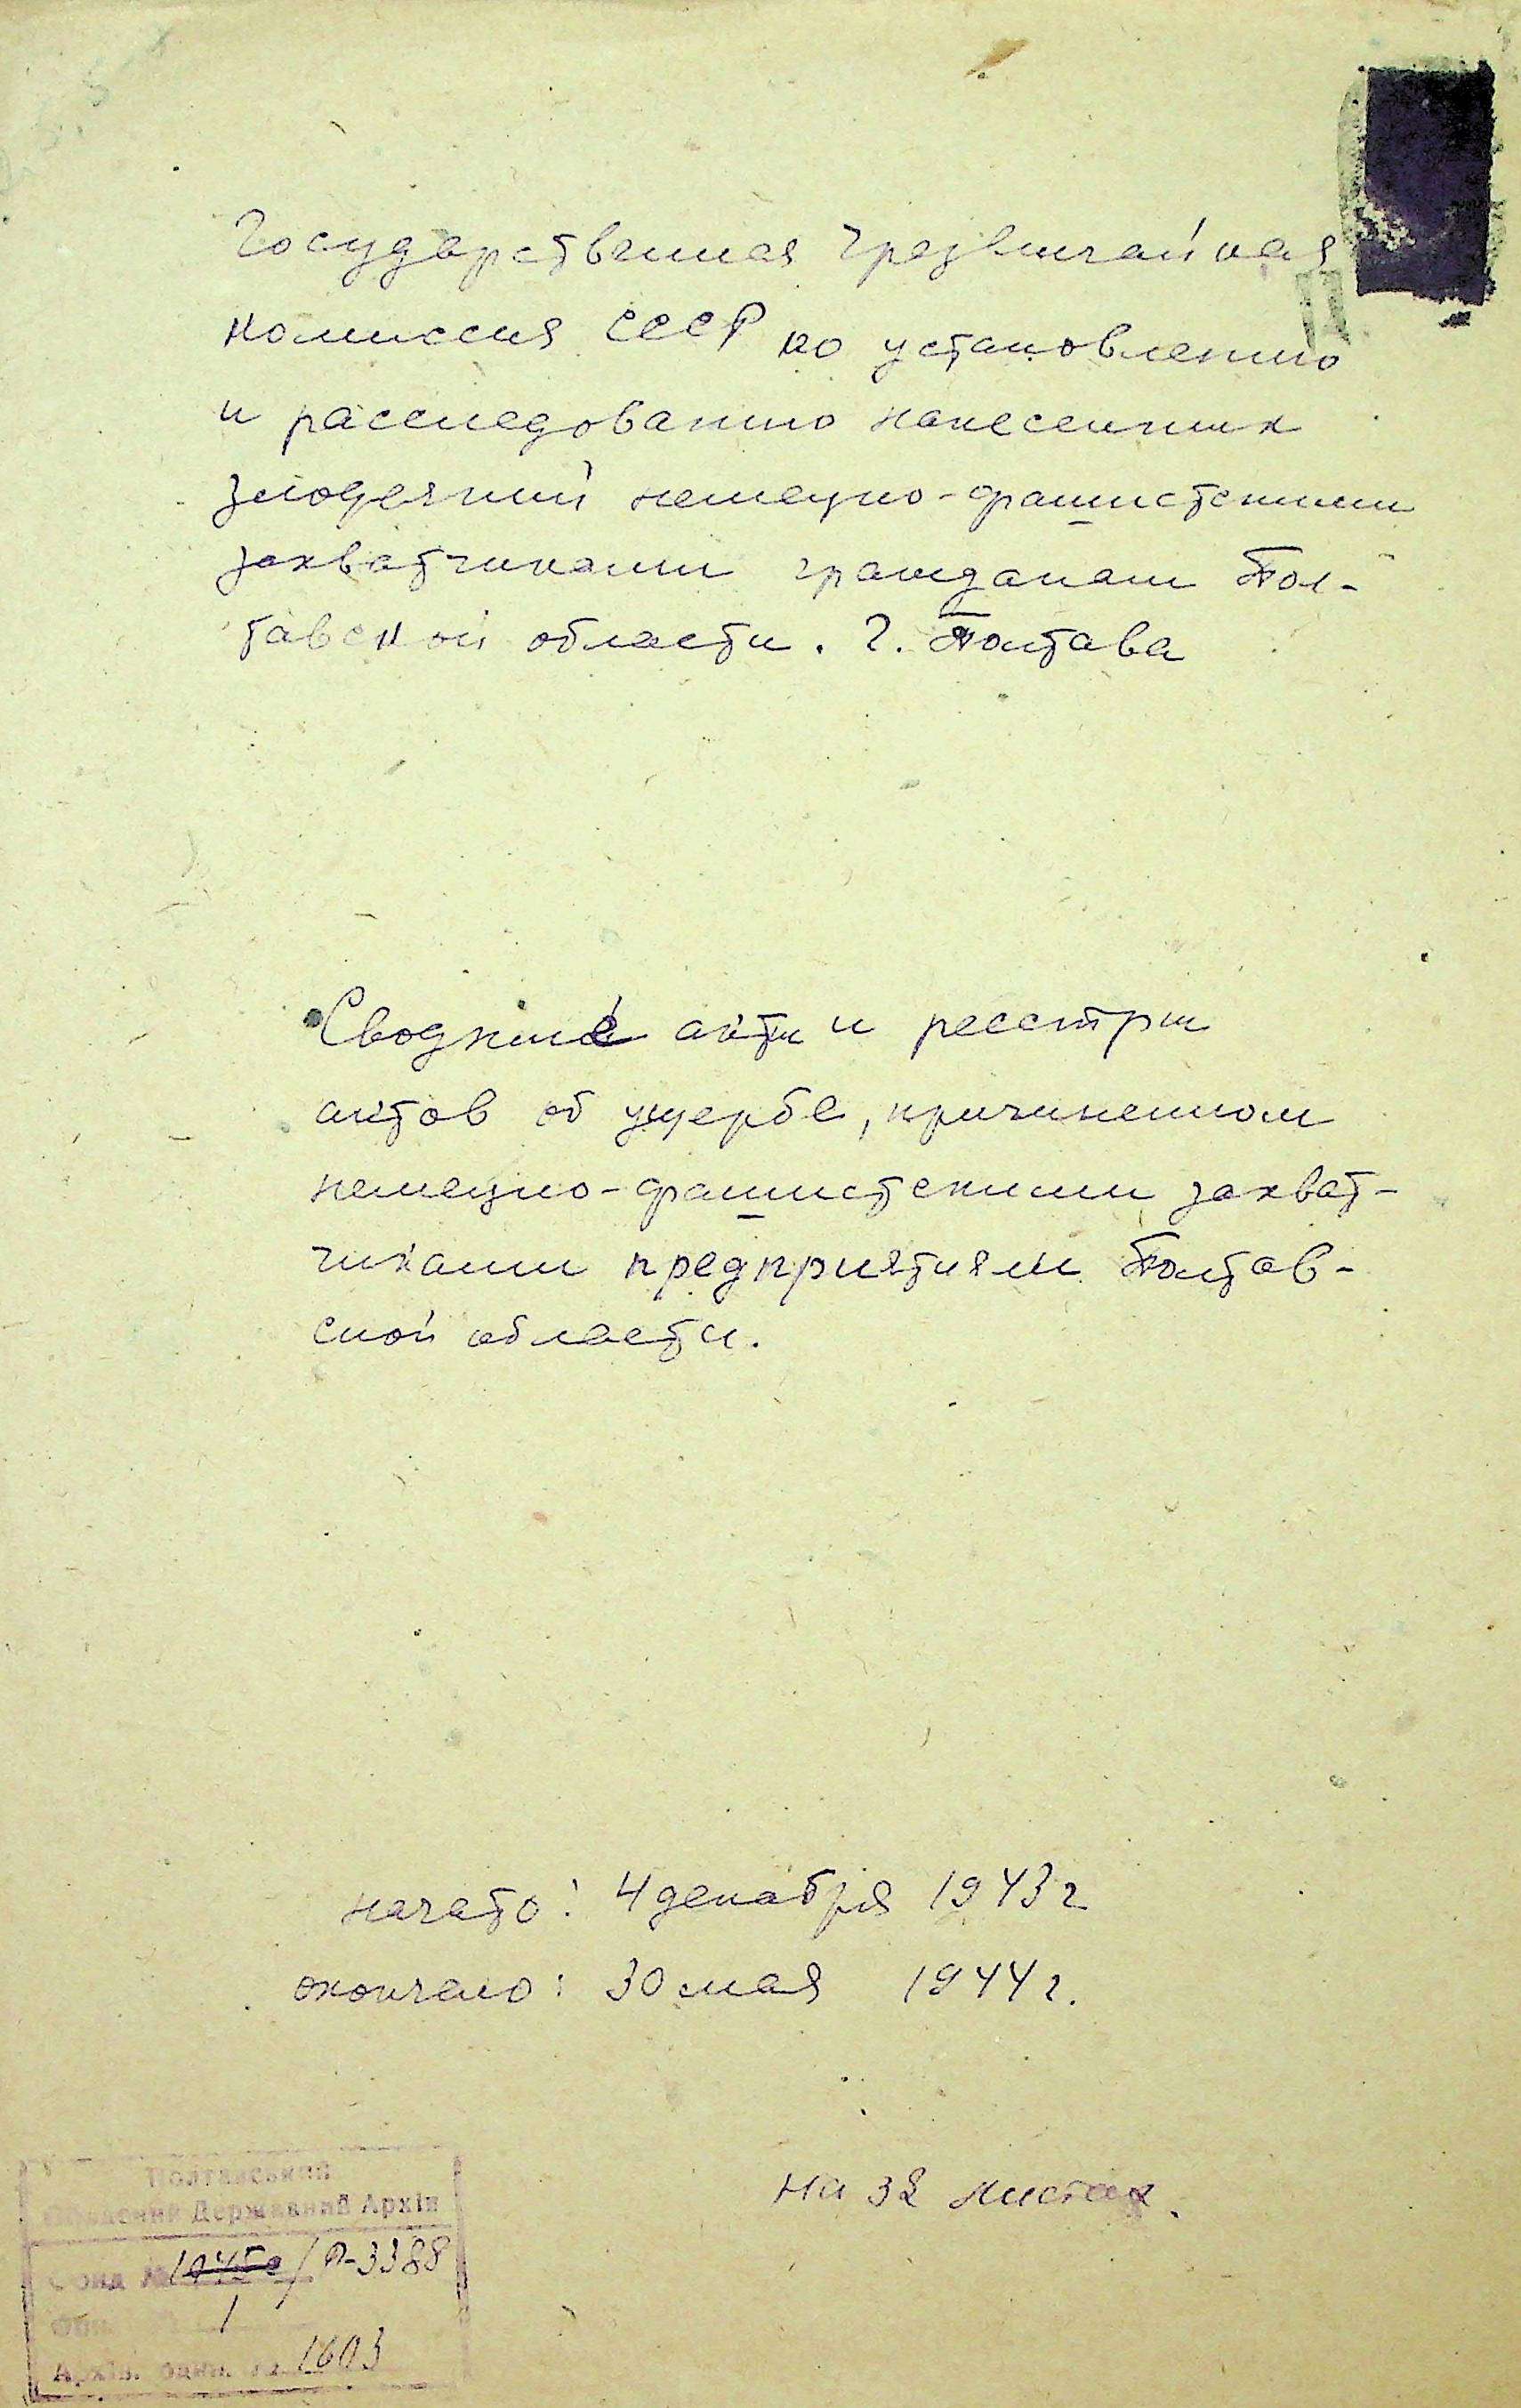 Государственная Чрезвычайная
комиссия СССР по установлению
и расследованию нанесенных
злодеяний немецко-фашистскими
захватчиками гражданам Пол-
тавской области. г. Полтава
Сводные акты и реестры
актов об ущербе, причиненном
немецко-фашистскими захват-
чиками предприятиям Полтав-
ской области.
начато: 4 декабря 1943 г
окончено: 30 мая 1944 г.
На 32 листах.
Полтавський
Обласний Державний Архів
Фонд № Р-3388
Опис № 1
Архів. один. № 1603